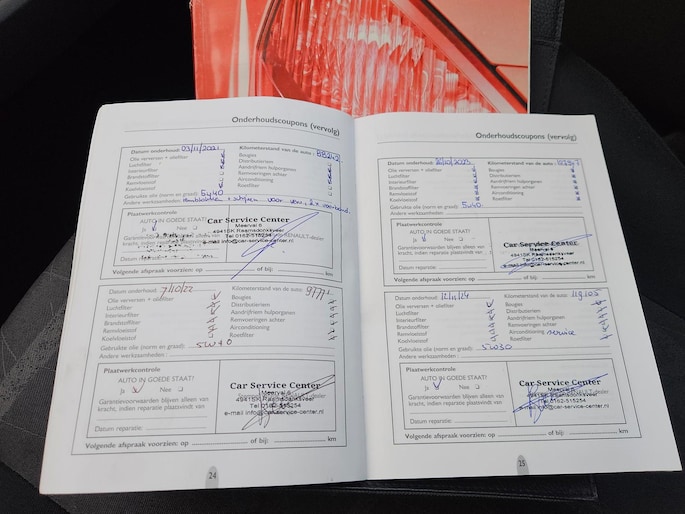 Onderhoudscoupons (vervolg)
Datum onderhoud: 03/11/2021 Kilometerstand van de auto:
Olie verversen + oliefilter Bougies
Luchtfilter Distributieriem
Interieurfilter Aandrijfriem hulporganen
Brandstoffilter Remvoeringen achter
Remvloeistof Airconditioning
Koelvloeistof Roetfilter
Gebruikte olie (norm en graad): 5W40
Andere werkzaamheden:
Plaatwerkcontrole
AUTO IN GOEDE STAAT?
Ja Nee
Garantievoorwaarden
kracht, indien reparatie
Datum reparatie:
Car Service Center
Meerval 6
4941SK Raamsdonksveer
Tel 0162-515254
e-mail info@car-service-center.nl
Volgende afspraak voorzien: op of bij: km
Datum onderhoud: 7/10/22 Kilometerstand van de auto:
Olie verversen + oliefilter Bougies
Luchtfilter Distributieriem
Interieurfilter Aandrijfriem hulporganen
Brandstoffilter Remvoeringen achter
Remvloeistof Airconditioning
Koelvloeistof Roetfilter
Gebruikte olie (norm en graad): 5W40
Andere werkzaamheden:
Plaatwerkcontrole
AUTO IN GOEDE STAAT?
Ja Nee
Garantievoorwaarden blijven alleen van
kracht, indien reparatie plaatsvindt van
Datum reparatie:
Car Service Center
Meerval 6
4941SK Raamsdonksveer
Tel 0162-515254
e-mail info@car-service-center.nl
Volgende afspraak voorzien: op of bij: km
24
Onderhoudscoupons (vervolg)
Datum onderhoud: Kilometerstand van de auto:
Olie verversen + oliefilter Bougies
Luchtfilter Distributieriem
Interieurfilter Aandrijfriem hulporganen
Brandstoffilter Remvoeringen achter
Remvloeistof Airconditioning
Koelvloeistof Roetfilter
Gebruikte olie (norm en graad): 5W40
Andere werkzaamheden:
Plaatwerkcontrole
AUTO IN GOEDE STAAT?
Ja Nee
Garantievoorwaarden blijven alleen van
kracht, indien reparatie plaatsvindt van
Datum reparatie:
Car Service Center
Meerval 6
4941SK Raamsdonksveer
Tel 0162-515254
e-mail info@car-service-center.nl
Volgende afspraak voorzien: op of bij: km
Datum onderhoud: 12/11/24 Kilometerstand van de auto: 119.105
Olie verversen + oliefilter Bougies
Luchtfilter Distributieriem
Interieurfilter Aandrijfriem hulporganen
Brandstoffilter Remvoeringen achter
Remvloeistof Airconditioning service
Koelvloeistof Roetfilter
Gebruikte olie (norm en graad): 5W30
Andere werkzaamheden:
Plaatwerkcontrole
AUTO IN GOEDE STAAT?
Ja Nee
Garantievoorwaarden blijven alleen van
kracht, indien reparatie plaatsvindt van
Datum reparatie:
Car Service Center
Meerval 6
4941SK Raamsdonksveer
Tel 0162-515254
e-mail info@car-service-center.nl
Volgende afspraak voorzien: op of bij: km
25